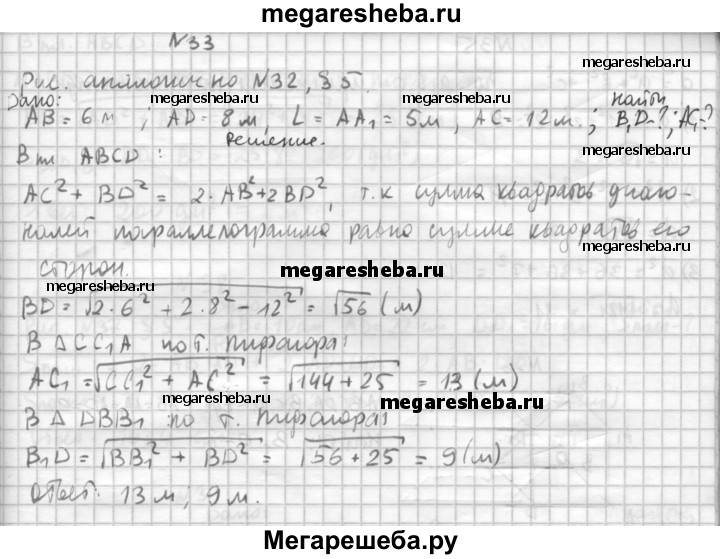 megaresheba.ru
N33
Рис. аналогично N32, §5.
Дано: megaresheba.ru megaresheba.ru найти
AB = 6 м ; AD = 8 м, L = AA₁ = 5м, AC = 12 м. ; B₁D-? ; AC₁-?
Решение.
В пл ABCD : megaresheba.ru megaresheba.ru
AC² + BD² = 2·AB²+2BD², т.к сумма квадратов диаго-
налей параллелограмма равно сумме квадратов его
сторон. megaresheba.ru megaresheba.ru
BD = √2·6² + 2·8² - 12² = √56 (м)
В Δ CC₁A по т. Пифагора:
AC₁ = √CC₁² + AC² = √144 + 25 = 13 (м)
megaresheba.ru megaresheba.ru
В Δ DBB₁ по т. Пифагора:
B₁D = √BB₁² + BD² = √56 + 25 = 9 (м)
Ответ: 13 м ; 9 м.
megaresheba.ru megaresheba.ru
Мегарешеба.ру